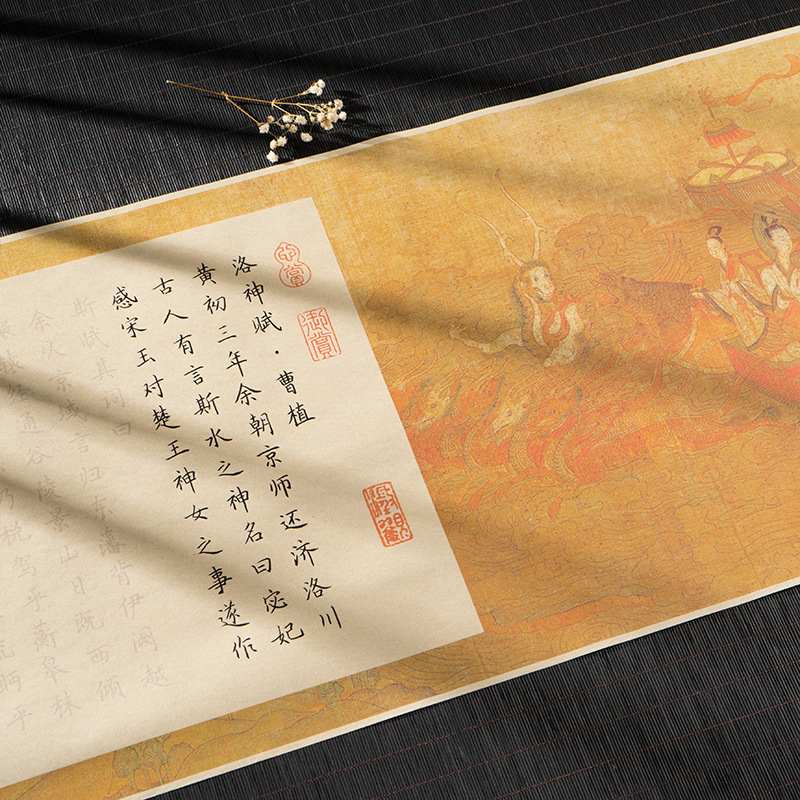 洛神赋·曹植
黄初三年余朝京师还济洛川
古人有言斯水之神名曰宓妃
感宋玉对楚王神女之事遂作
斯赋其词曰
余从京域言归东藩背伊阙越
辕经通谷陵景山日既西倾
乃税驾乎蘅皋秣
流眄乎
御赏